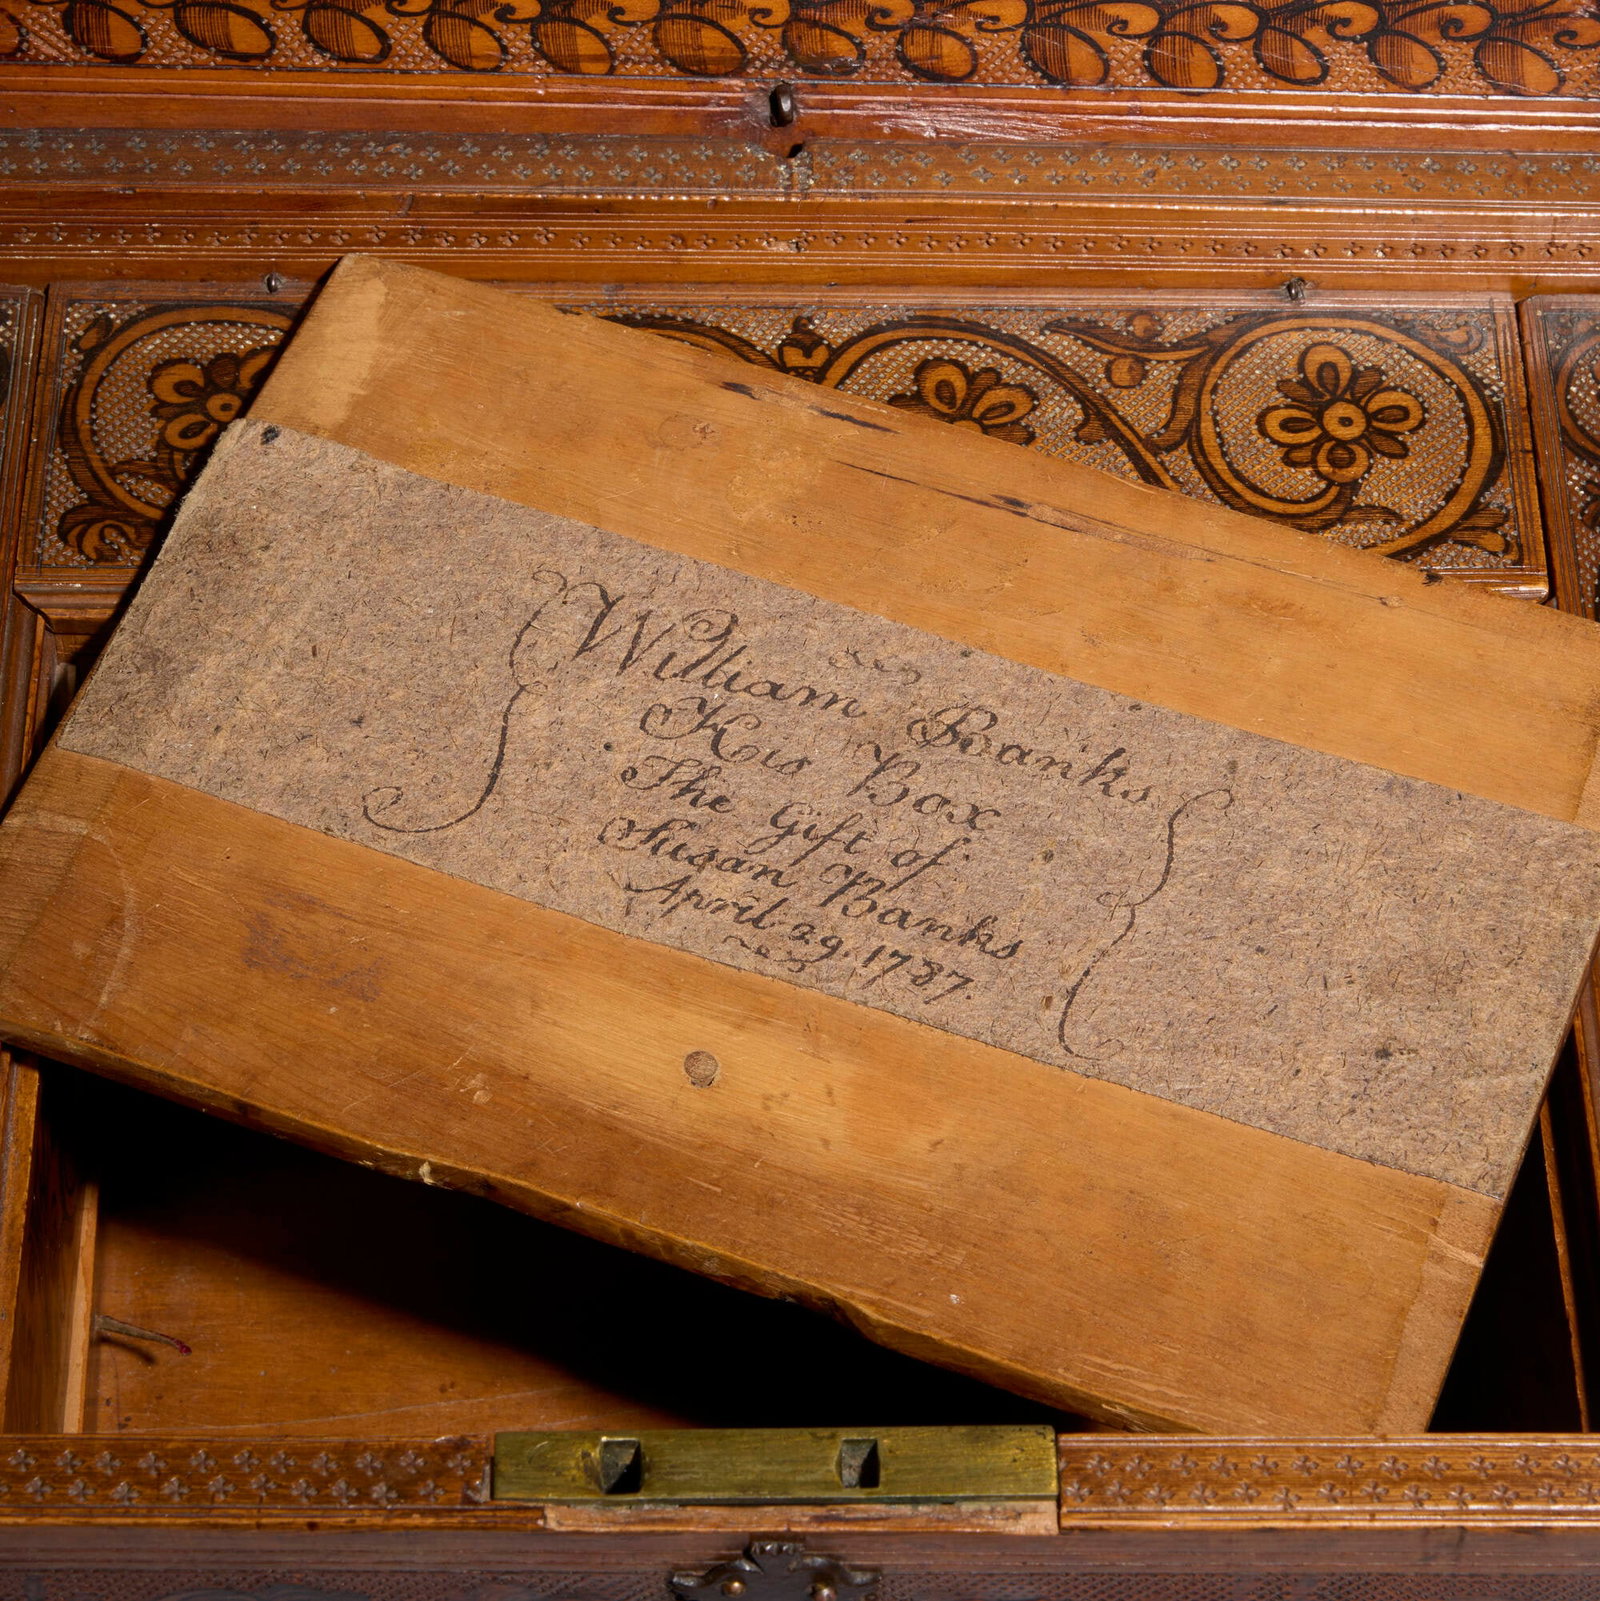 William Banks
His Box
The Gift of
Susan Banks
April 29. 1787.